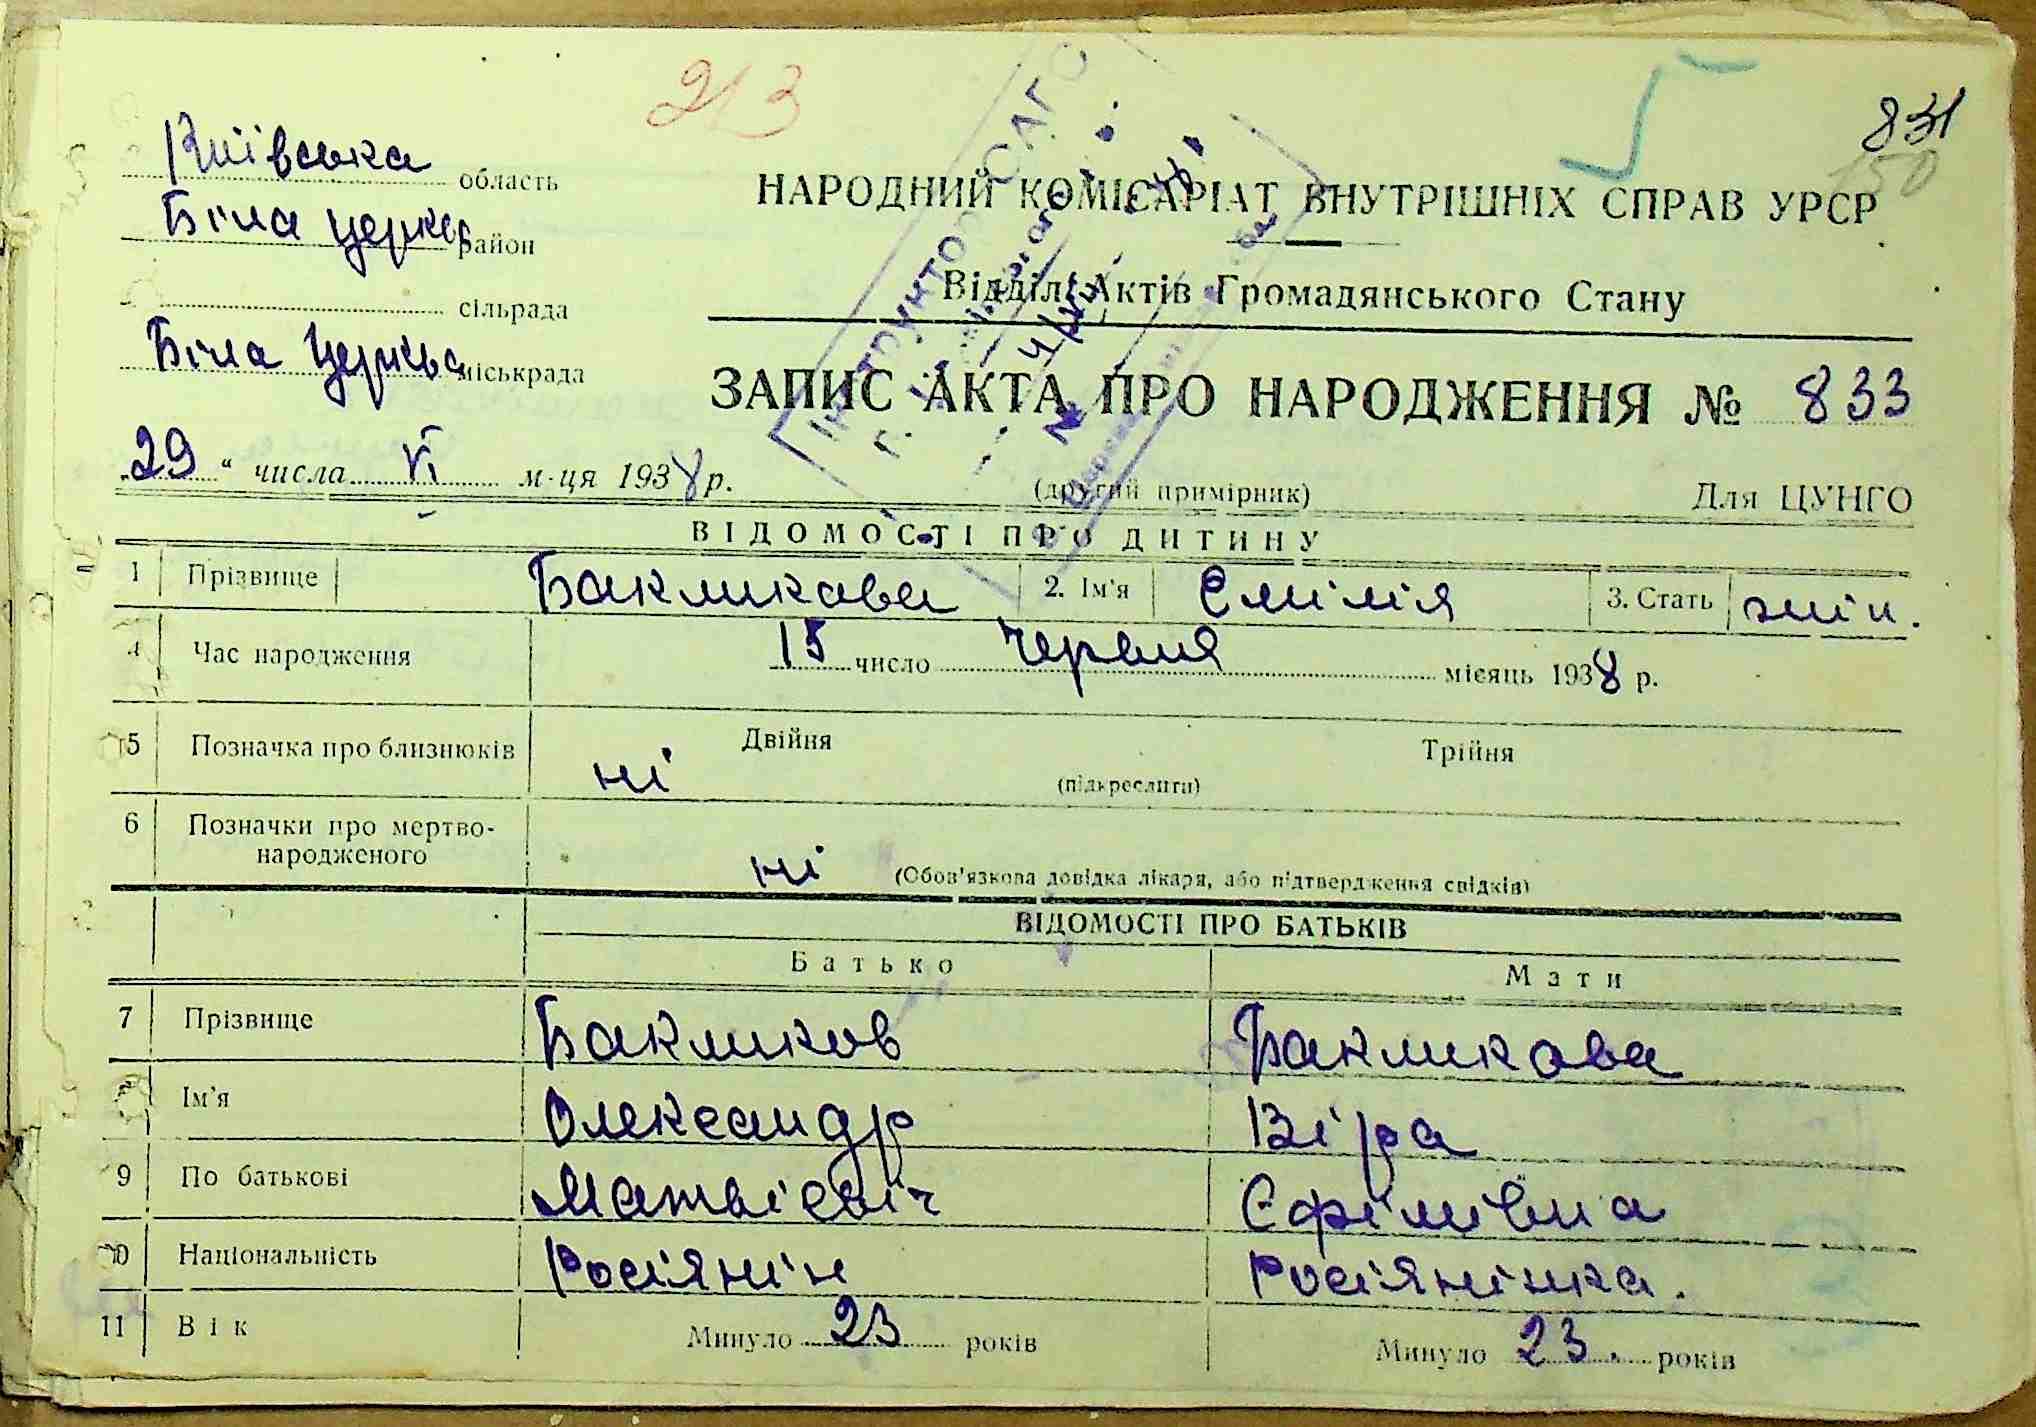 213
831
150
Київська область
Біла церква район
сільрада
Біла Церква міськрада
НАРОДНИЙ КОМІСАРІАТ ВНУТРІШНІХ СПРАВ УРСР
Відділ Актів Громадянського Стану
ЗАПИС АКТА ПРО НАРОДЖЕННЯ № 833
„29“ числа VI м-ця 1938 р.
(другий примірник)
Для ЦУНГО
ВІДОМОСТІ ПРО ДИТИНУ
1 Прізвище Бакликова 2. Ім'я Емілія 3. Стать жін.
4 Час народження 15 число червня місяць 1938 р.
5 Позначка про близнюків ні Двійня Трійня
(підкреслити)
6 Позначки про мертво-
народженого ні (Обов'язкова довідка лікаря, або підтвердження свідків)
ВІДОМОСТІ ПРО БАТЬКІВ
Батько Мати
7 Прізвище Бакликов Бакликова
8 Ім'я Олександр Віра
9 По батькові Матвієвіч Єфімівна
10 Національність Росіянін Росіянінка.
11 Вік Минуло 23 років Минуло 23. років